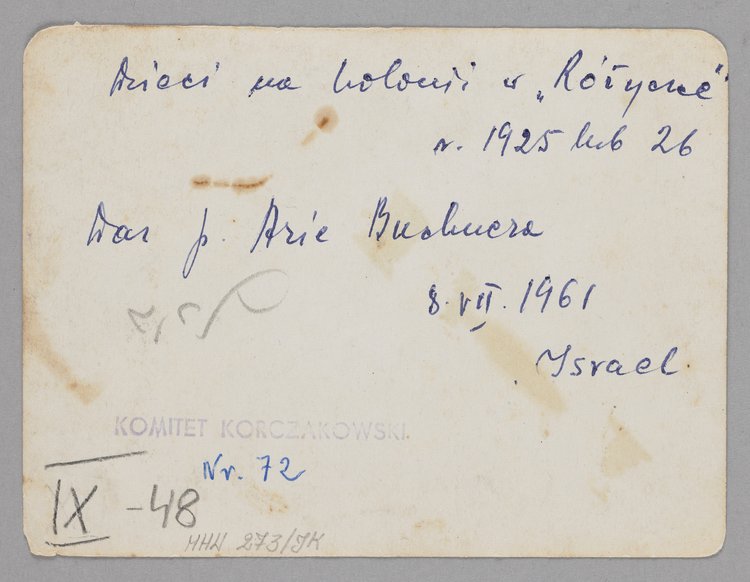 Dzieci na kolonii w „Różyczce"
r. 1925 lub 26
Dar p. Arie Buchnera
8.VII.1961
Israel
KOMITET KORCZAKOWSKI
Nr. 72
IX -48
MHW 273/JK